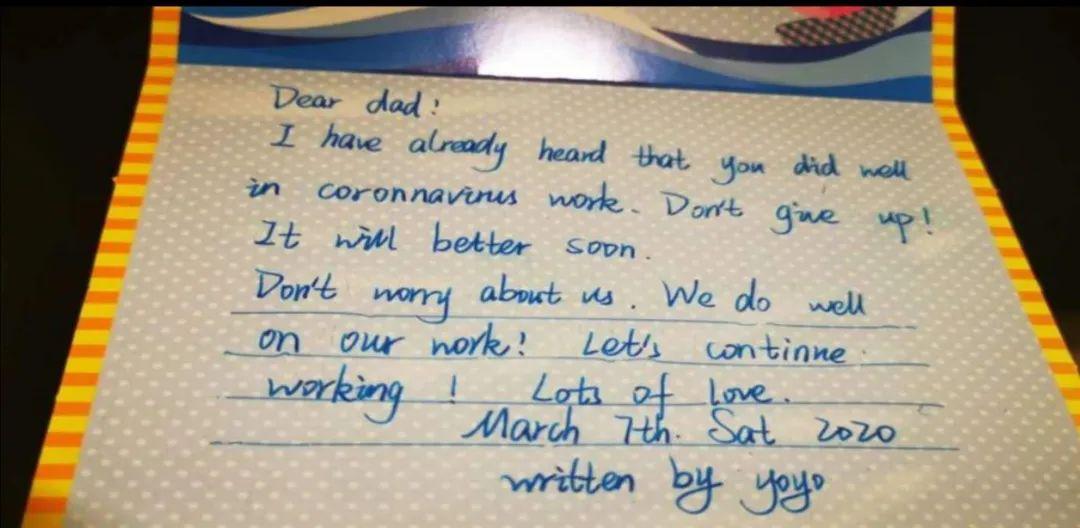 Dear dad:
I have already heard that you did well
in coronnavirus work. Don't give up!
It will better soon.
Don't worry about us. We do well
on our work! Let's continue
working! Lots of love.
March 7th. Sat 2020
written by yoyo